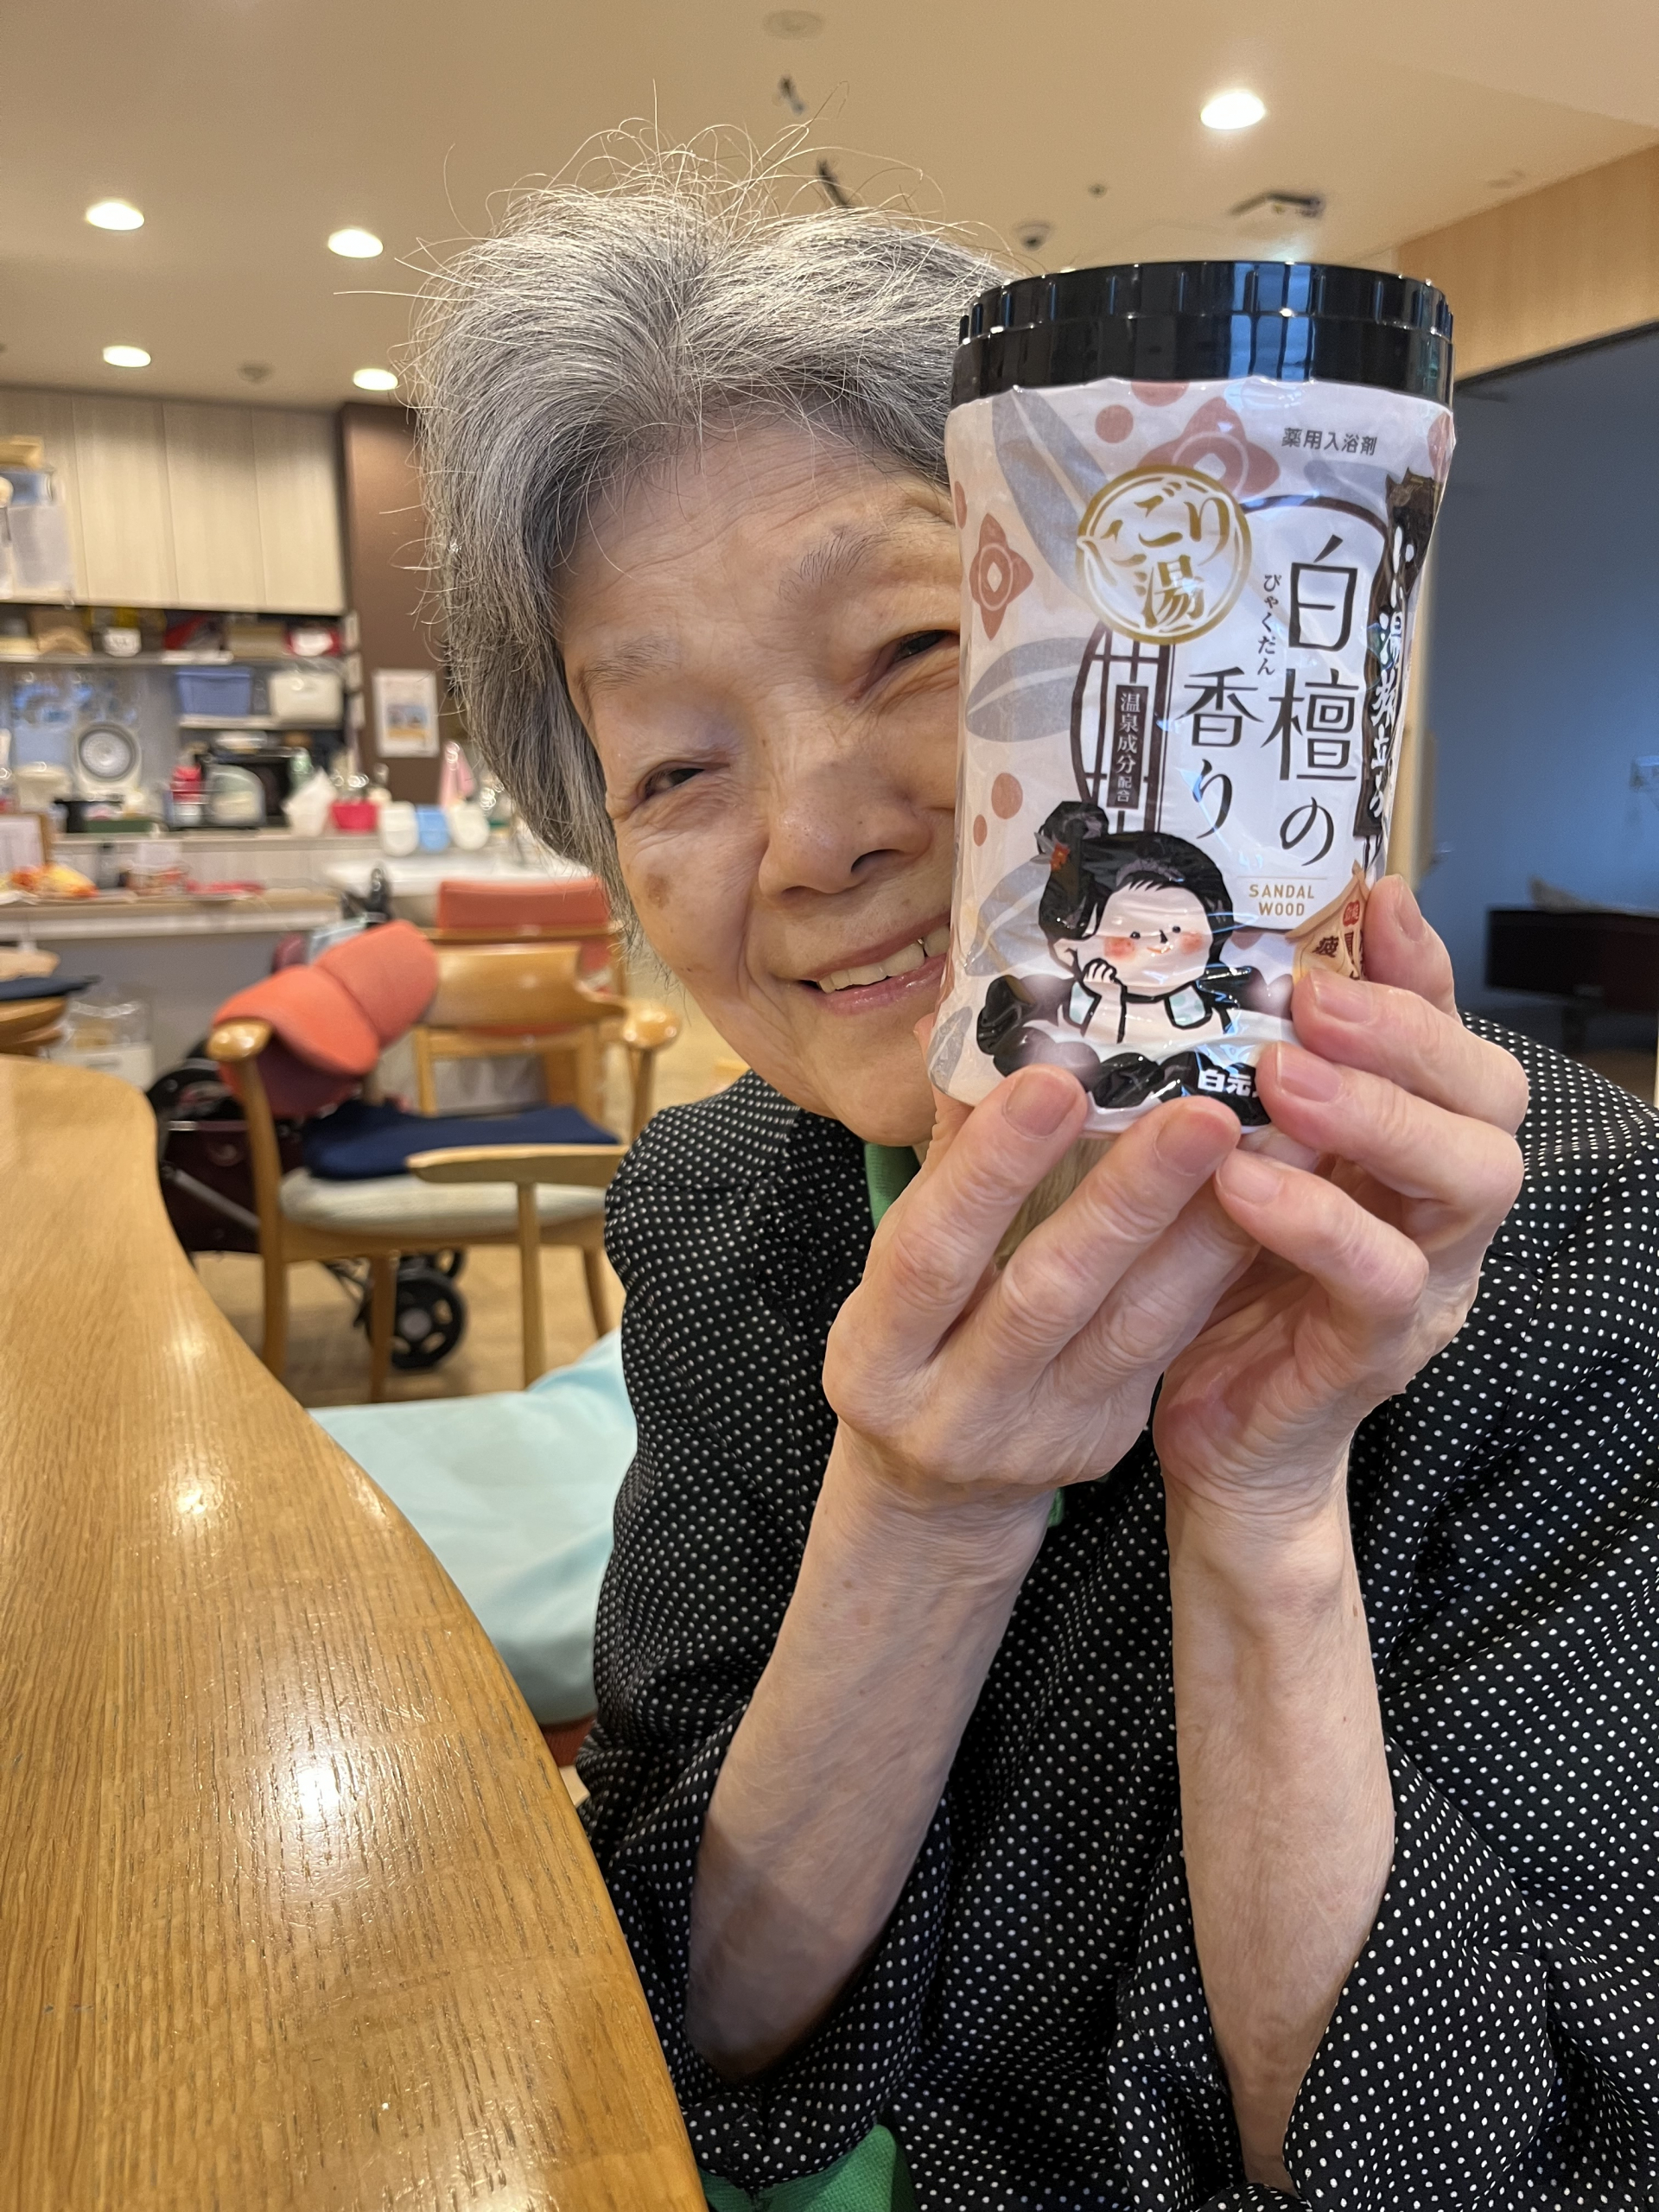 薬用入浴剤
にごり
湯
白檀の
びゃくだん
香り
温泉成分配合
SANDAL
WOOD
白元